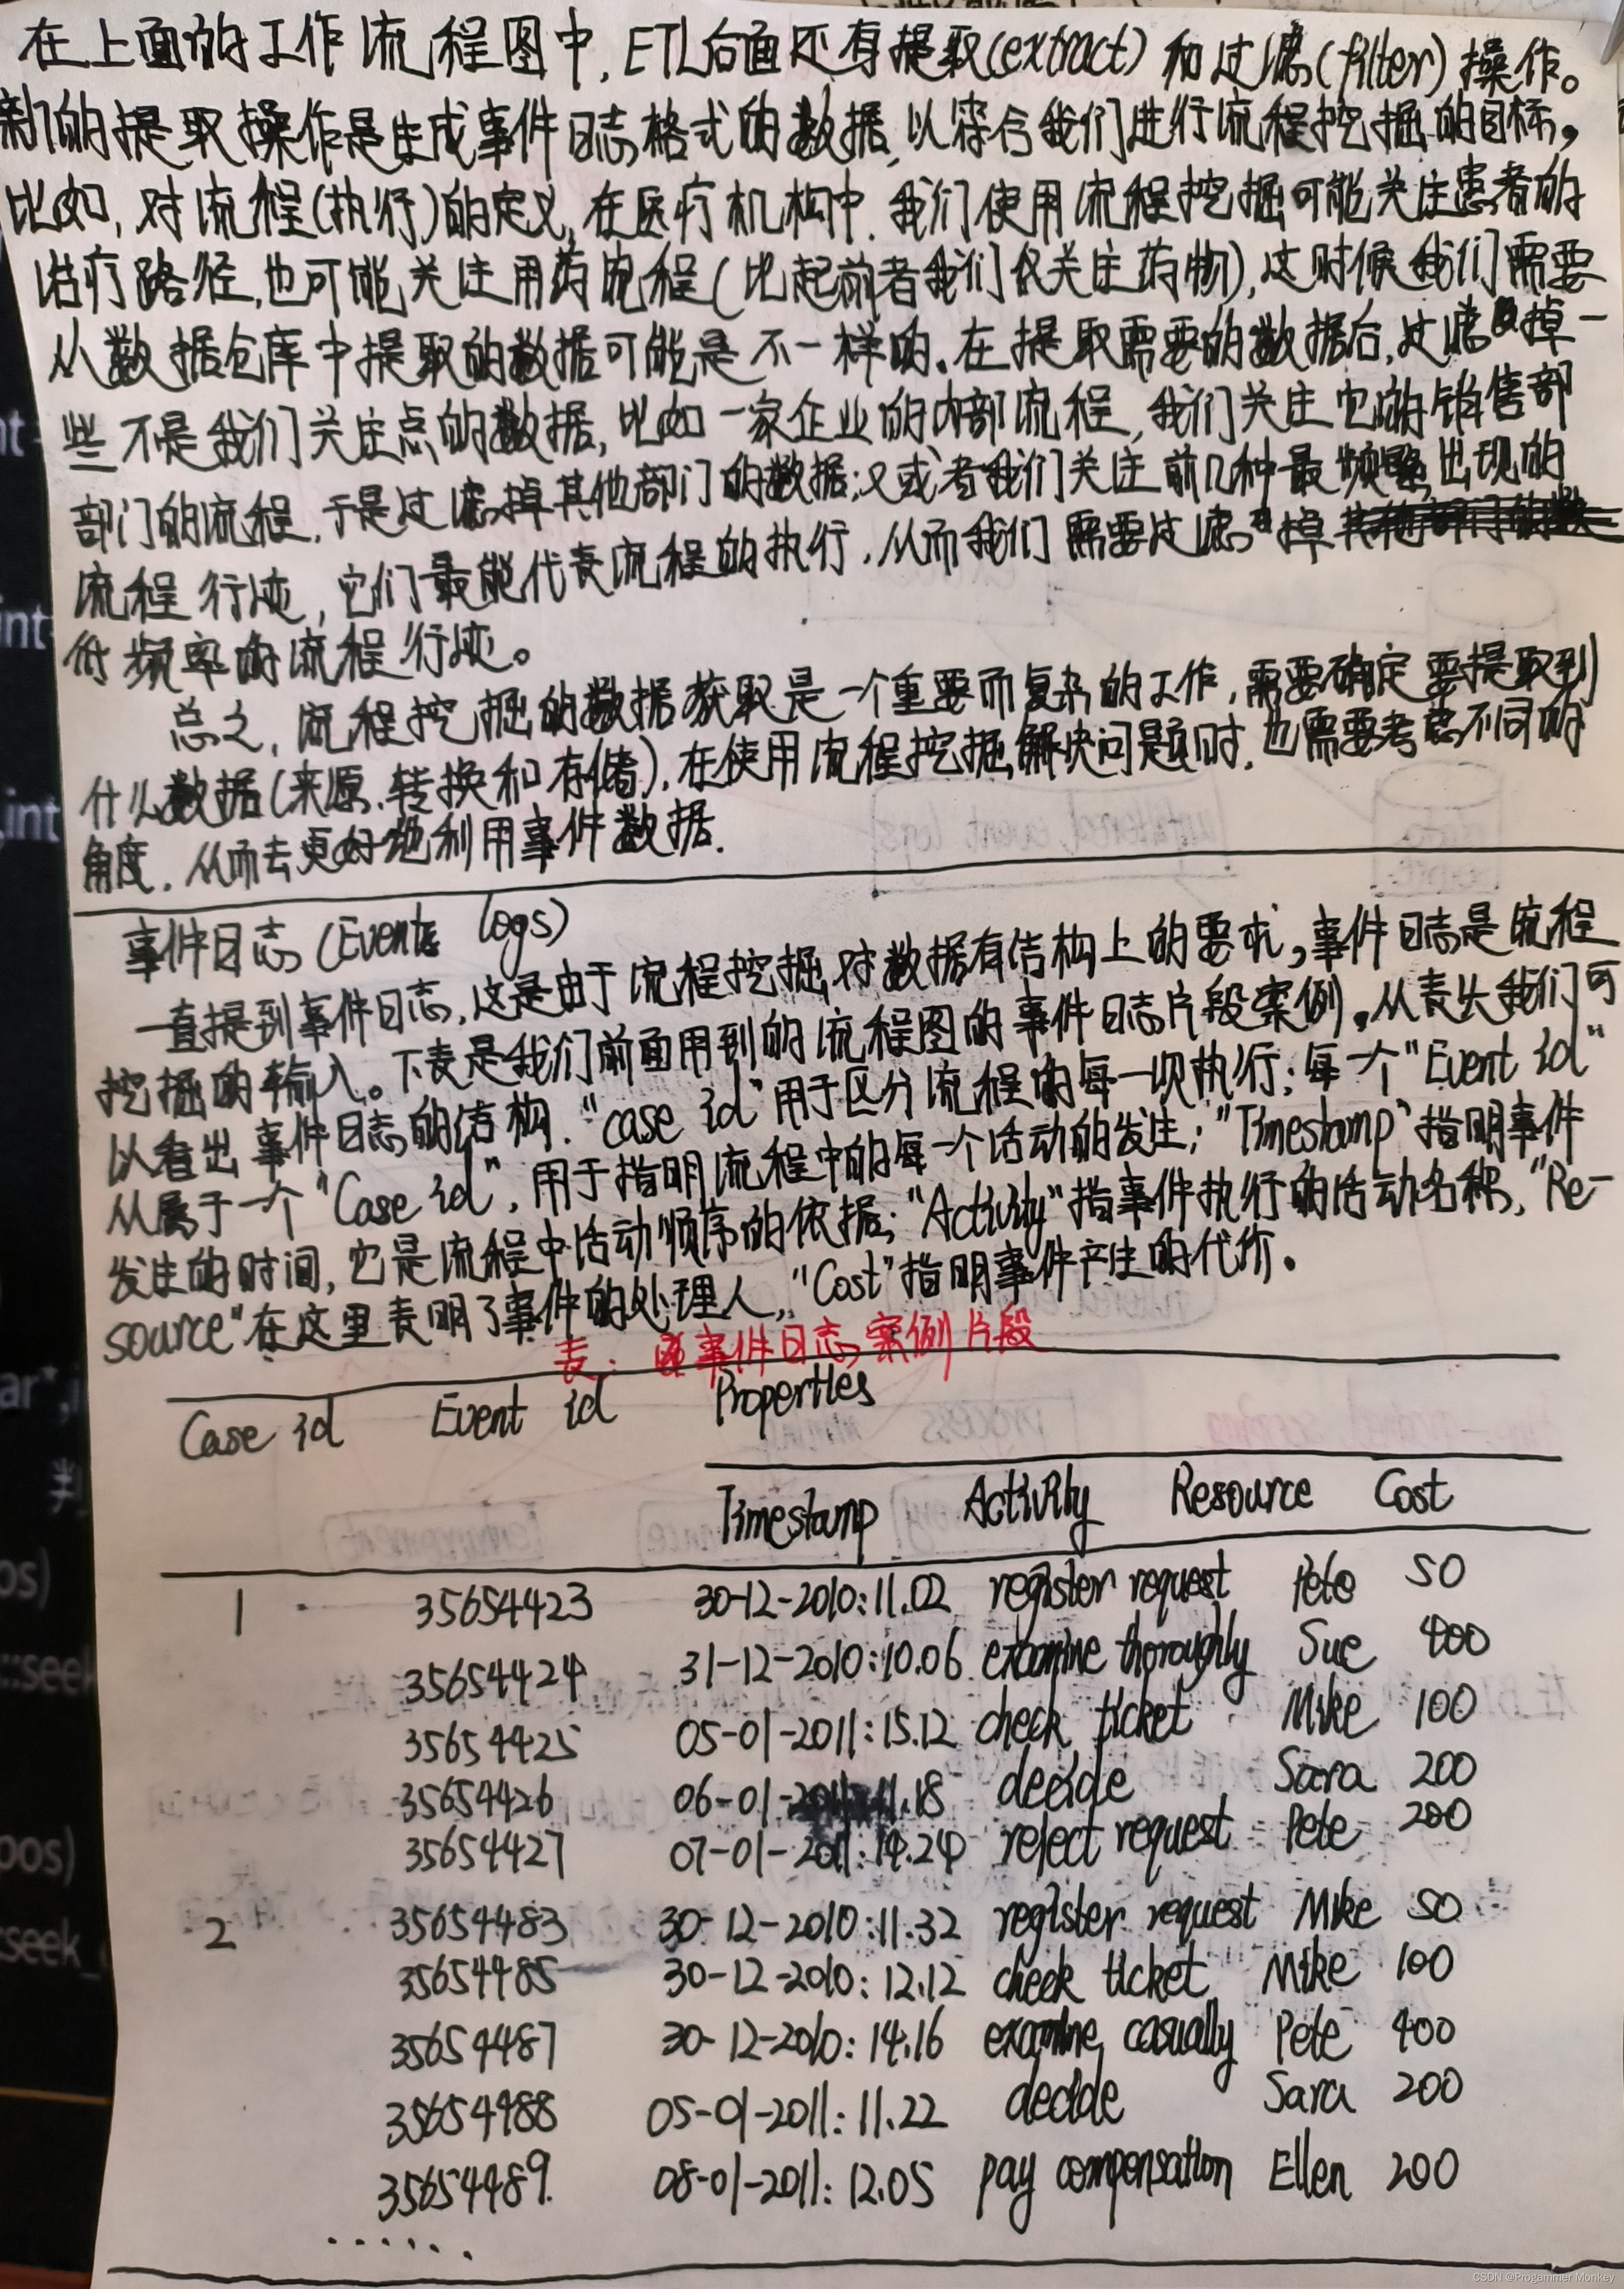 在上面的工作流程图中,ETL后面还有提取(extract)和过滤(filter)操作。
新的提取操作是生成事件日志格式的数据,以符合我们进行流程挖掘的目标,
比如,对流程(执行)的定义,在医疗机构中,我们使用流程挖掘可能关注患者的
治疗路径,也可能关注用药流程(比起前者我们仅关注药物),这时候我们需要
从数据仓库中提取的数据可能是不一样的.在提取需要的数据后,过滤掉一
些不是我们关注点的数据,比如一家企业的内部流程,我们关注它的销售部
部门的流程,于是过滤掉其他部门的数据;又或者我们关注前几种最频繁出现的
流程行迹,它们最能代表流程的执行,从而我们需要过滤掉
低频率的流程行迹。
总之,流程挖掘的数据获取是一个重要而复杂的工作,需要确定要提取到
什么数据(来源、转换和存储),在使用流程挖掘解决问题时,也需要考虑不同的
角度,从而去更好地利用事件数据.
事件日志(Event logs)
一直提到事件日志,这是由于流程挖掘对数据有结构上的要求,事件日志是流程
挖掘的输入。下表是我们前面用到的流程图的事件日志片段案例,从表头我们可
以看出事件日志的结构."case id"用于区分流程的每一次执行;每一个"Event id"
从属于一个"Case id",用于指明流程中的每一个活动的发生;"Timestamp"指明事件
发生的时间,它是流程中活动顺序的依据;"Activity"指事件执行的活动名称,"Re-
source"在这里表明了事件的处理人,"Cost"指明事件产生的代价.
表: 事件日志案例片段
Case id Event id Properties
Timestamp Activity Resource Cost
1 35654423 30-12-2010:11.02 register request Pete 50
35654424 31-12-2010:10.06 examine thoroughly Sue 400
35654425 05-01-2011:15.12 check ticket Mike 100
35654426 06-01-2011:11.18 decide Sara 200
35654427 07-01-2011:14.24 reject request Pete 200
2 35654483 30-12-2010:11.32 register request Mike 50
35654485 30-12-2010:12.12 check ticket Mike 100
35654487 30-12-2010:14.16 examine casually Pete 400
35654488 05-01-2011:11.22 decide Sara 200
35654489 08-01-2011:12.05 pay compensation Ellen 200
......
CSDN @Progammer Monkey